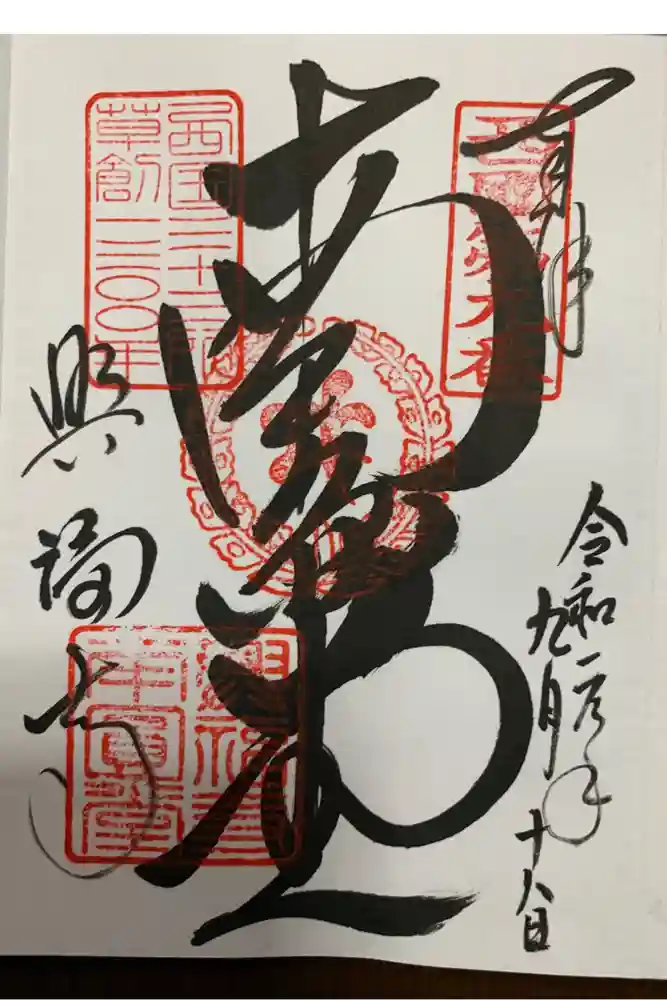 奉拝
西国第九番
令和元年
九月十八日
南圓堂
西国三十三所
草創一三〇〇年
興福寺
興福寺
南圓堂